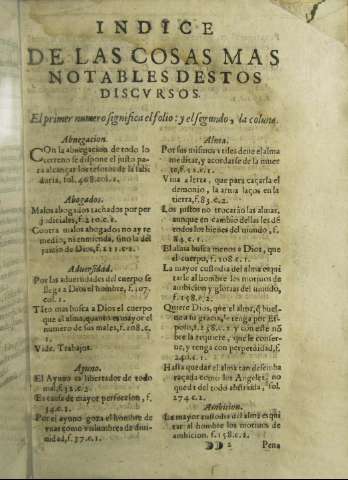 INDICE
DE LAS COSAS MAS
NOTABLES DESTOS
DISCVRSOS.
El primer numero significa el folio: y el segundo, la colun̄a.
Abnegacion.
COn la abnegacion de todo lo
terreno se dispone el justo para
alcançar los tesoros de la sabi
duria, fol. 468. col. 2.
Abogados.
Malos abogados tachados por per
judiciales, f. 210. c. 1.
Contra malos abogados no ay re
medio, ni enmienda, sino la del
perdon de Dios, f. 211. c. 2.
Aduersidad.
Por las aduersidades del cuerpo se
llega à Dios el hombre, f. 107.
col. 1.
Tāto mas busca a Dios el cuerpo
que al alma, quanto es mayor el
numero de sus males, f. 108. c.
1.
Vide. Trabajos.
Ayuno.
El Ayuno es libertador de todo
mal, f. 32. c. 2.
Es causa de mayor perfeccion, f.
34. c. 1.
Por el ayuno goza el hombre de
vnas como vislumbres de diui-
nidad, f. 37. c. 1.
Alma.
Por sus mismos vtiles deue el alma
meditar, y acordarse de la muer
te, f. c. 1.
Vna alerta, que para caçarla el
demonio, la arma laços en la
tierra, f. 83. c. 2.
Los justos no trocarian las almas,
aunque en cambio dellas les dē
todos los bienes del mundo, f.
84. c. 1.
El alma busca menos a Dios, que
el cuerpo, f. 108. c. 1.
La mayor custodia del alma es qui
tarle al hombre los motiuos de
ambicion, y glorias del mundo,
f. 158. c. 2.
Quiere Dios, que el alma, q̄ buel-
ue a su gracia, le tenga por Es-
poso, f. 238. c. 1. y con este nō
bre la requiere, que le conser-
ue, y tenga con perpetuidad, f.
240. c. 1.
Hasta quedar el alma tan desemba
raçada como los Angeles, no
quedò del todo abstraida, fol.
274. c. 2.
Ambicion.
La mayor custodia del alma es qui
tar al hombre los motiuos de
ambicion. f. 158. c. 2.
DD 2 Pena